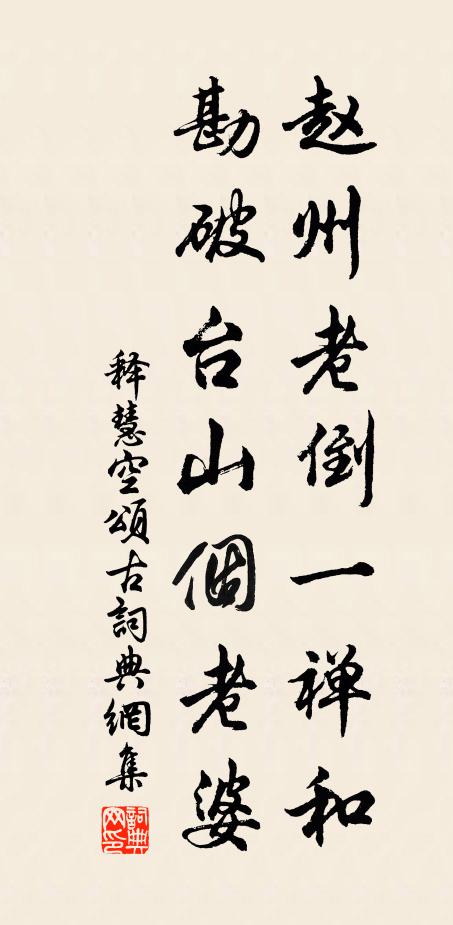 赵州老倒一禅和
勘破台山個老婆
释慧空頌古詞典網集
詞典网印